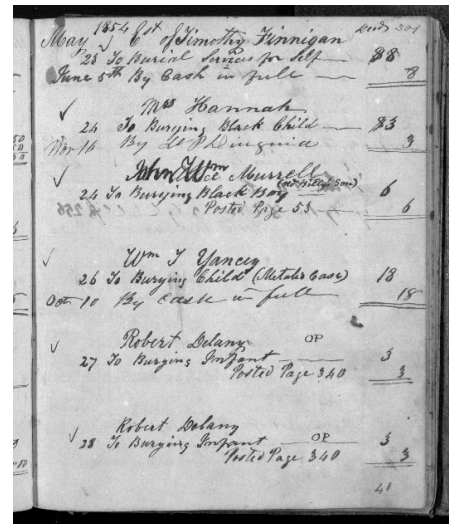 May 1854 Est of Timothy Finnigan 301
23 To Burial Services for Self $8
June 5th By Cash in full 8
√ Mrs Hannah
24 To Burying Black Child $3
Nov 16 By D P Diuguid 3
√ Murrell
24 To Burying Black Boy (old Billys Son) 6
Posted Page 53 6
√ Wm T Yancey
26 To Burying Child (Metalic Case) 18
Oct 10 By Cash in full 18
√ Robert Delany OP
27 To Burying Infant 3
Posted Page 340 3
Robert Delany
√ 28 To Burying Infant OP 3
Posted Page 340 3
41